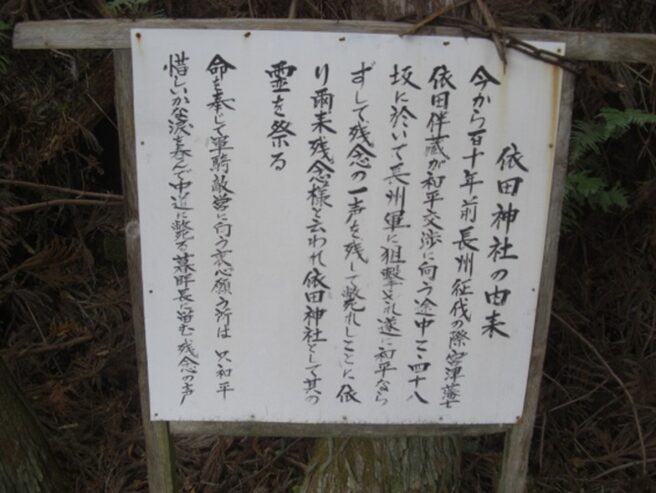 依田神社の由来
今から百十年前長州征伐の際宮津藩士
依田伴蔵が和平交渉に向う途中こゝ四十八
坂に於いて長州軍に狙撃され遂に和平なら
ずして残念の一声を残して斃れしことに依
り爾来残念様と云われ依田神社として其の
霊を祭る
命を奉じて単騎敵営に向う衷心願う所は只和平
惜しいかな涙を呑んで中道に斃る 墓畔長に留む残念の声